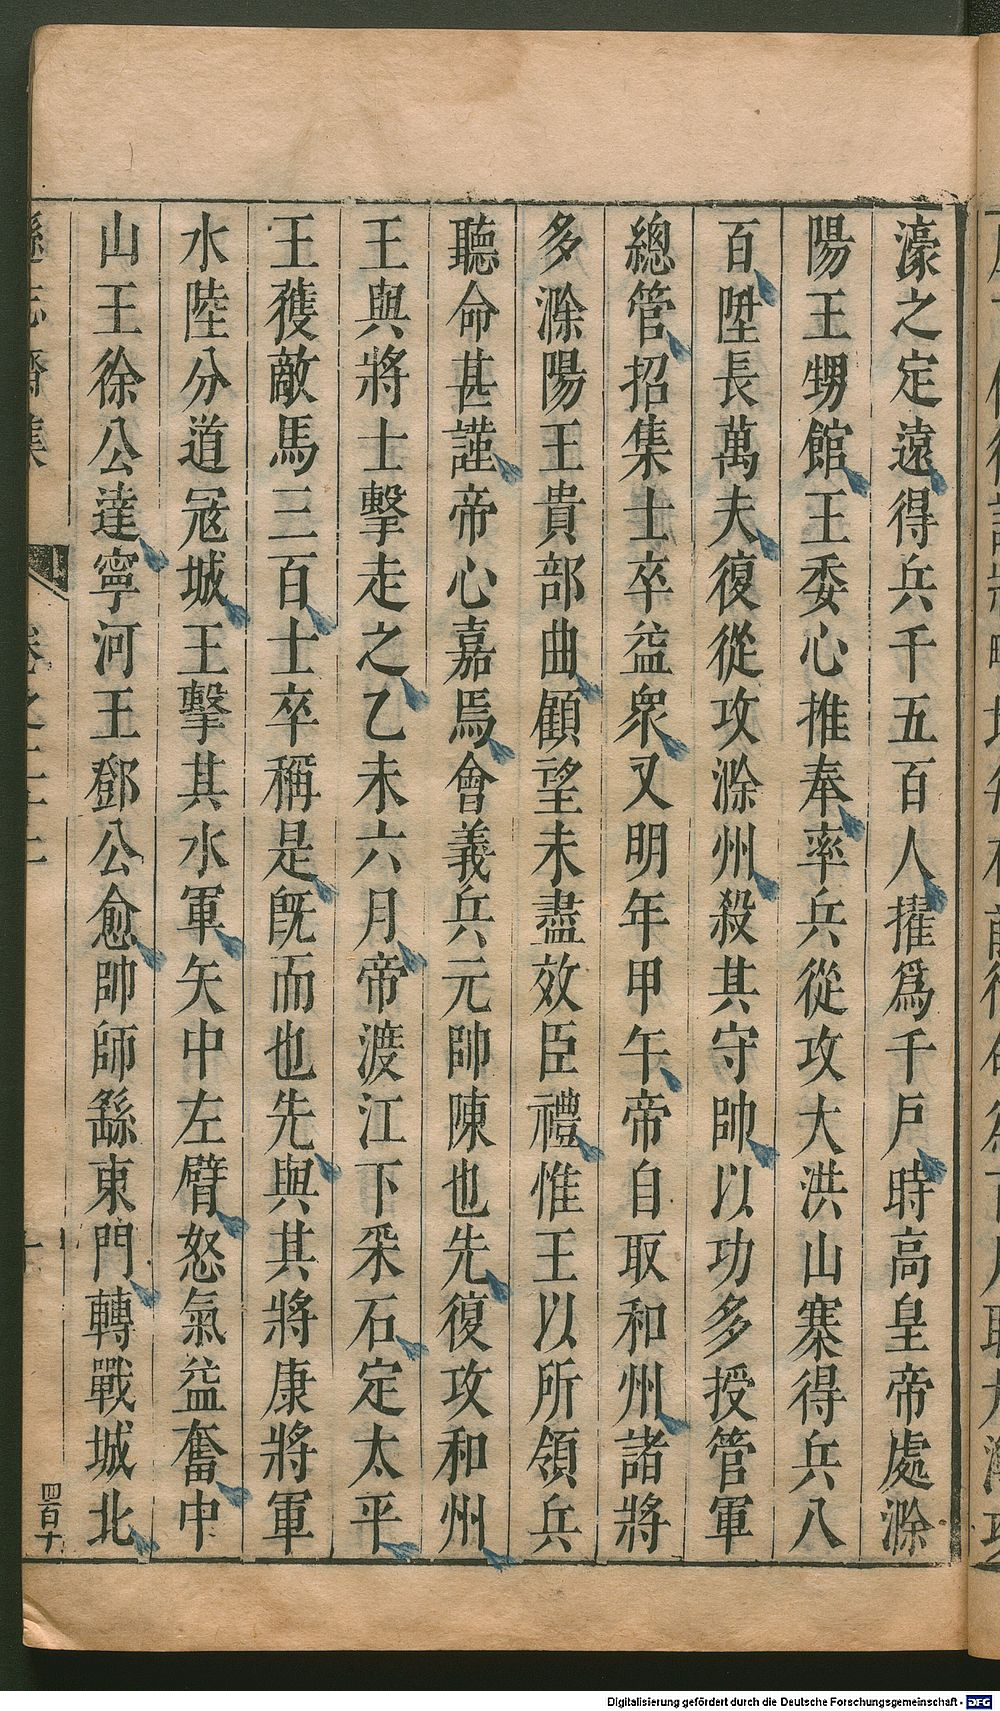 濠之定遠得兵千五百人擢爲千戶時高皇帝處滁
陽王甥館王委心推奉率兵從攻大洪山寨得兵八
百陞長萬夫復從攻滁州殺其守帥以功多授管軍
總管招集士卒益衆又明年甲午帝自取和州諸將
多滁陽王貴部曲顧望未盡效臣禮惟王以所領兵
聽命甚謹帝心嘉焉會義兵元帥陳也先復攻和州
王與將士擊走之乙未六月帝渡江下采石定太平
王獲敵馬三百士卒稱是既而也先與其將康將軍
水陸分道冦城王擊其水軍矢中左臂怒氣益奮中
山王徐公達寧河王鄧公愈帥師繇東門轉戰城北
遜志齋集
卷之二十二
四百十
Digitalisierung gefördert durch die Deutsche Forschungsgemeinschaft - DFG